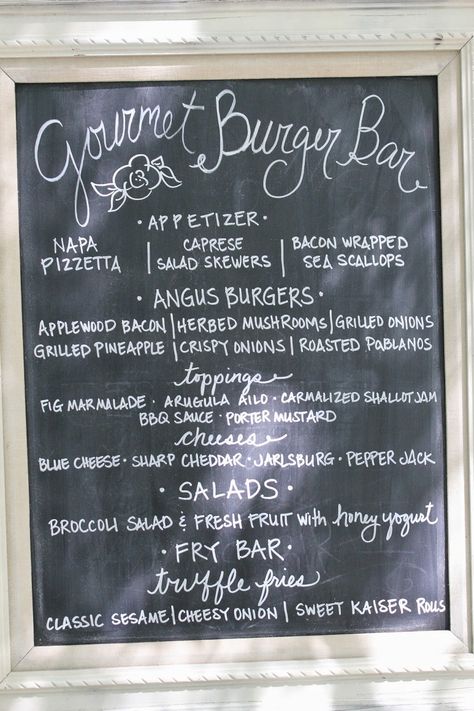 Gourmet Burger Bar
· APPETIZER ·
NAPA PIZZETTA | CAPRESE SALAD SKEWERS | BACON WRAPPED SEA SCALLOPS
· ANGUS BURGERS ·
APPLEWOOD BACON | HERBED MUSHROOMS | GRILLED ONIONS
GRILLED PINEAPPLE | CRISPY ONIONS | ROASTED POBLANOS
toppings
FIG MARMALADE · ARUGULA AILO · CARMALIZED SHALLOT JAM
BBQ SAUCE · PORTER MUSTARD
cheeses
BLUE CHEESE · SHARP CHEDDAR · JARLSBURG · PEPPER JACK
· SALADS ·
BROCCOLI SALAD & FRESH FRUIT with honey yogust
· FRY BAR ·
truffle fries
CLASSIC SESAME | CHEESY ONION | SWEET KAISER ROLLS